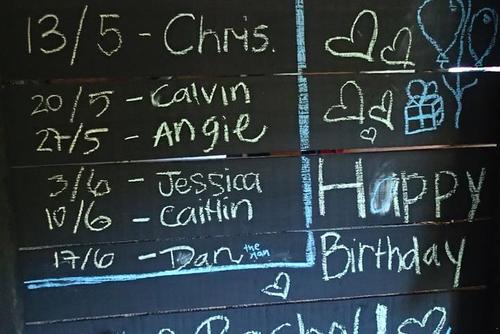 13/5 - Chris.
20/5 - Calvin
27/5 - Angie
3/6 - Jessica
10/6 - Caitlin
17/6 - Dan the man
Happy
Birthday
Rachel!